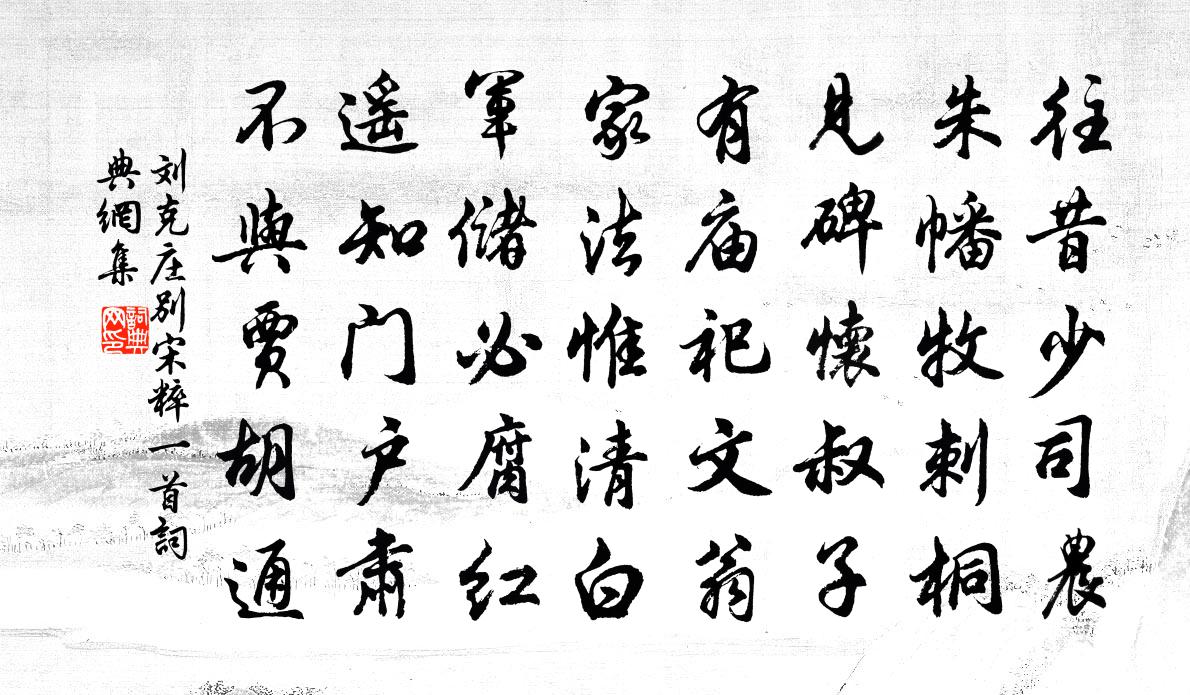 往昔少司農
朱幡牧刺桐
見碑懷叔子
有庙祀文翁
家法惟清白
軍儲必腐红
遥知门户肅
不與賈胡通
刘克庄别宋粹一首詞
典網集
詞典网印